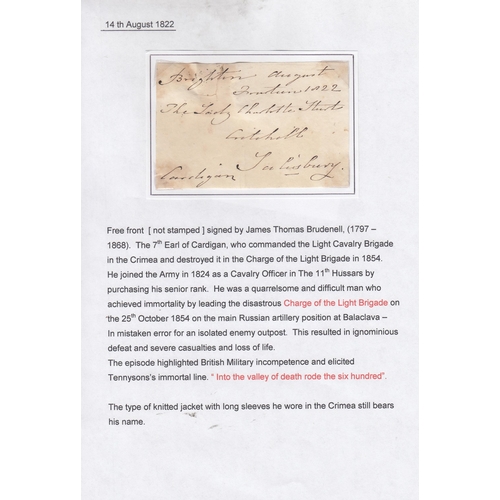 14 th August 1822
Brighton August
Fourteen 1822
The Lady Charlotte Sturt
Critchell
Salisbury.
Cardigan
Free front [ not stamped ] signed by James Thomas Brudenell, (1797 –
1868). The 7th Earl of Cardigan, who commanded the Light Cavalry Brigade
in the Crimea and destroyed it in the Charge of the Light Brigade in 1854.
He joined the Army in 1824 as a Cavalry Officer in The 11th Hussars by
purchasing his senior rank. He was a quarrelsome and difficult man who
achieved immortality by leading the disastrous Charge of the Light Brigade on
the 25th October 1854 on the main Russian artillery position at Balaclava –
In mistaken error for an isolated enemy outpost. This resulted in ignominious
defeat and severe casualties and loss of life.
The episode highlighted British Military incompetence and elicited
Tennysons's immortal line. “ Into the valley of death rode the six hundred”.
The type of knitted jacket with long sleeves he wore in the Crimea still bears
his name.